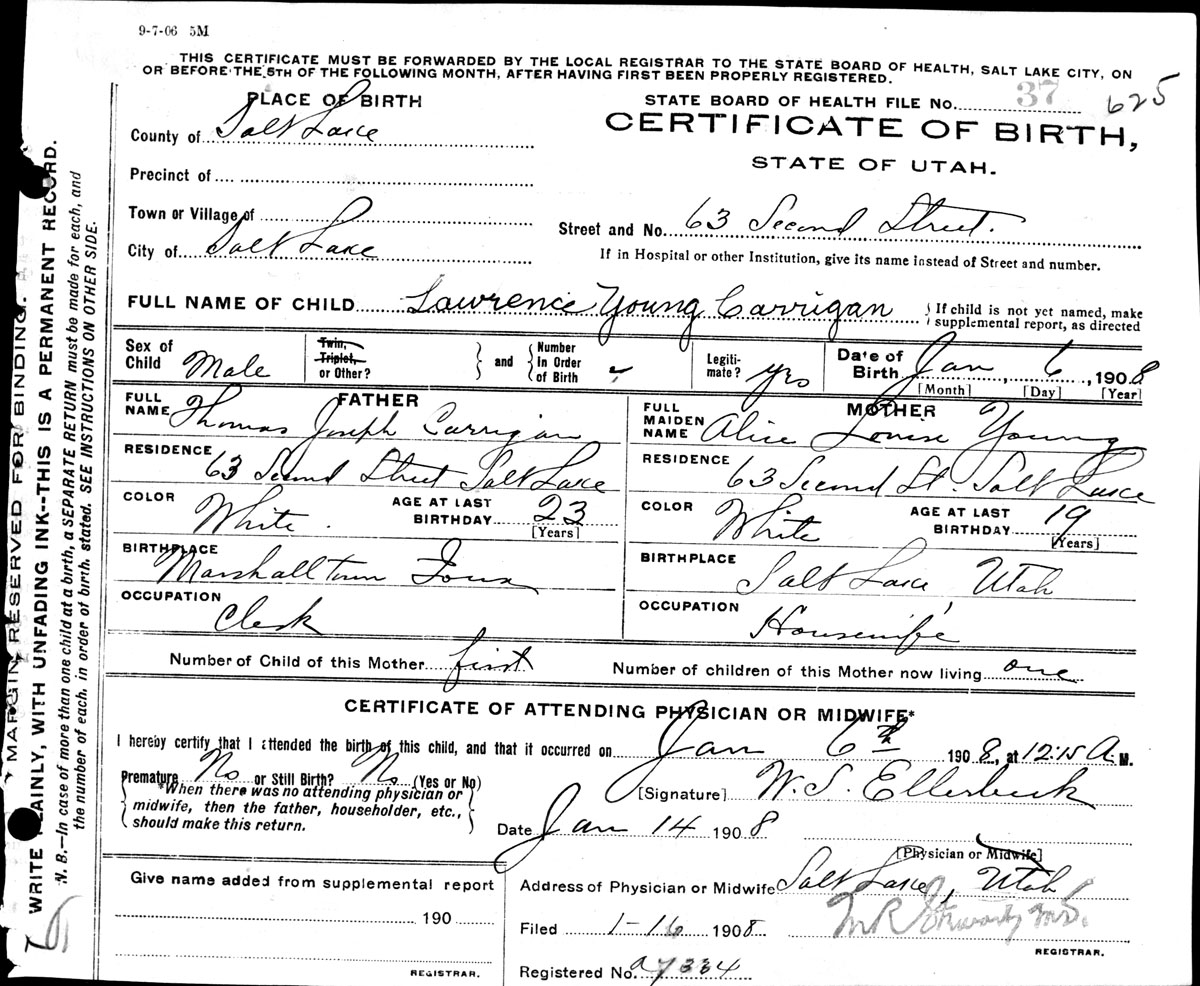 9-7-06 5M
THIS CERTIFICATE MUST BE FORWARDED BY THE LOCAL REGISTRAR TO THE STATE BOARD OF HEALTH, SALT LAKE CITY, ON
OR BEFORE THE 5TH OF THE FOLLOWING MONTH, AFTER HAVING FIRST BEEN PROPERLY REGISTERED.
PLACE OF BIRTH
STATE BOARD OF HEALTH FILE No. 37 625
County of Salt Lake
CERTIFICATE OF BIRTH,
STATE OF UTAH.
Precinct of
Town or Village of
Street and No. 63 Second Street.
City of Salt Lake
If in Hospital or other Institution, give its name instead of Street and number.
FULL NAME OF CHILD Lawrence Young Carrigan { If child is not yet named, make
supplemental report, as directed
Sex of Child Male
Twin, Triplet, or Other?
and
Number In Order of Birth
Legiti-mate? yes
Date of Birth Jan 6, 1908
[Month] [Day] [Year]
FATHER
FULL NAME Thomas Joseph Carrigan
MOTHER
FULL MAIDEN NAME Alice Louise Young
RESIDENCE 63 Second Street Salt Lake
RESIDENCE 63 Second St. Salt Lake
COLOR White. AGE AT LAST BIRTHDAY 23 [Years]
COLOR White AGE AT LAST BIRTHDAY 19 [Years]
BIRTHPLACE Marshalltown Iowa
BIRTHPLACE Salt Lake, Utah
OCCUPATION Clerk
OCCUPATION Housewife
Number of Child of this Mother first
Number of children of this Mother now living one
CERTIFICATE OF ATTENDING PHYSICIAN OR MIDWIFE*
I hereby certify that I attended the birth of this child, and that it occurred on Jan 6th 1908, at 12:15 A. M.
Premature No or Still Birth? No (Yes or No)
*When there was no attending physician or
midwife, then the father, householder, etc.,
should make this return.
[Signature] W. S. Ellerbeck
Date Jan 14 1908
[Physician or Midwife]
Give name added from supplemental report
190
REGISTRAR.
Address of Physician or Midwife Salt Lake, Utah
Filed 1-16 1908
REGISTRAR.
Registered No. a7334
MARGIN RESERVED FOR BINDING.
WRITE PLAINLY, WITH UNFADING INK--THIS IS A PERMANENT RECORD.
N. B.—In case of more than one child at a birth, a SEPARATE RETURN must be made for each, and
the number of each, in order of birth, stated. SEE INSTRUCTIONS ON OTHER SIDE.